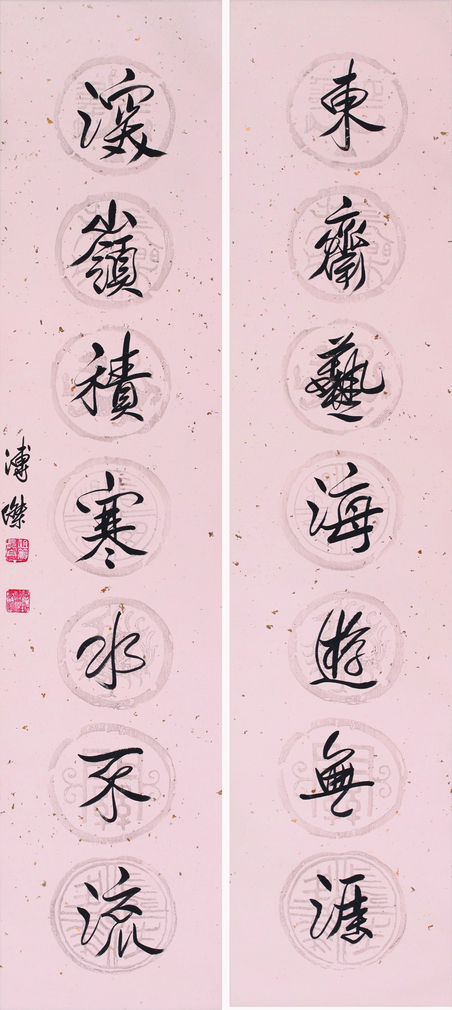 東齋藝海遊無涯
深嶺積寒水不流
溥傑